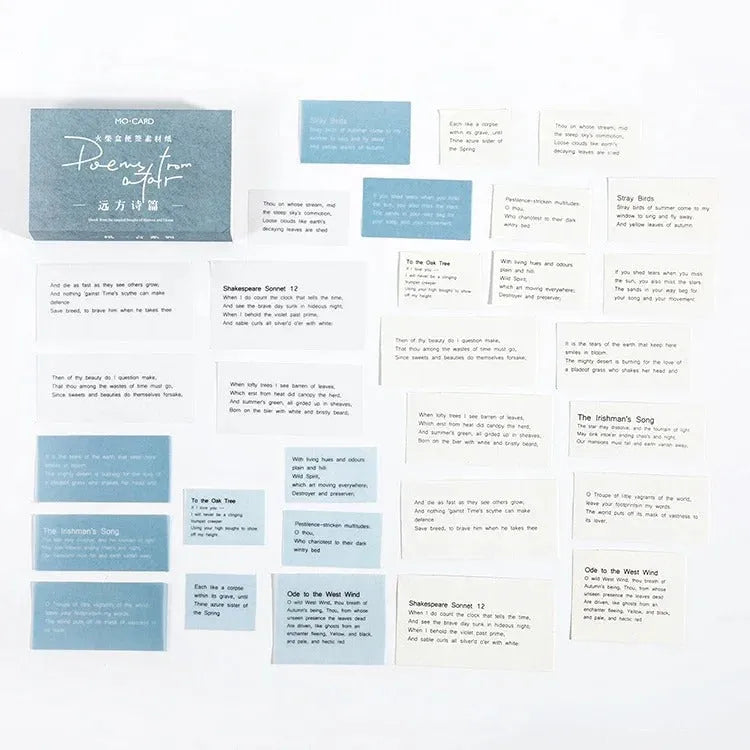 MO·CARD
火柴盒便签素材纸
Poems from
afar
远方诗篇
Stray Birds
Stray birds of summer come to my
window to sing and fly away
And yellow leaves of autumn
Each like a corpse
within its grave, until
Thine azure sister of
the Spring
Thou on whose stream, mid
the steep sky's commotion,
Loose clouds like earth's
decaying leaves are shed
Thou on whose stream, mid
the steep sky's commotion,
Loose clouds like earth's
decaying leaves are shed
If you shed tears when you miss
the sun, you also miss the stars
The sands in your way beg for
your song and your movement
Pestilence-stricken multitudes:
O thou,
Who chariotest to their dark
wintry bed
Stray Birds
Stray birds of summer come to my
window to sing and fly away,
And yellow leaves of autumn
To the Oak Tree
If I love you —
I will never be a clinging
trumpet creeper
Using your high boughs to show
off my height
With living hues and odours
plain and hill:
Wild Spirit,
which art moving everywhere;
Destroyer and preserver;
If you shed tears when you miss
the sun, you also miss the stars
The sands in your way beg for
your song and your movement
And die as fast as they see others grow;
And nothing 'gainst Time's scythe can make
defence
Save breed, to brave him when he takes thee
Shakespeare Sonnet 12
When I do count the clock that tells the time,
And see the brave day sunk in hideous night;
When I behold the violet past prime,
And sable curls all silver'd o'er with white:
Then of thy beauty do I question make,
That thou among the wastes of time must go,
Since sweets and beauties do themselves forsake,
It is the tears of the earth that keep here
smiles in bloom.
The mighty desert is burning for the love of
a bladeof grass who shakes her head and
Then of thy beauty do I question make,
That thou among the wastes of time must go,
Since sweets and beauties do themselves forsake,
When lofty trees I see barren of leaves,
Which erst from heat did canopy the herd,
And summer's green, all girded up in sheaves,
Born on the bier with white and bristly beard,
When lofty trees I see barren of leaves,
Which erst from heat did canopy the herd,
And summer's green, all girded up in sheaves,
Born on the bier with white and bristly beard,
The Irishman's Song
The star may dissolve, and the fountain of light
May sink intoe'er ending chaos and night,
Our mansions must fall and earth vanish away,
It is the tears of the earth that keep here
smiles in bloom.
The mighty desert is burning for the love of
a bladeof grass who shakes her head and
With living hues and odours
plain and hill:
Wild Spirit,
which art moving everywhere;
Destroyer and preserver;
To the Oak Tree
If I love you —
I will never be a clinging
trumpet creeper
Using your high boughs to show
off my height
And die as fast as they see others grow;
And nothing 'gainst Time's scythe can make
defence
Save breed, to brave him when he takes thee
O Troupe of little vagrants of the world,
leave your footprintsin my words.
The world puts off its mask of vastness to
its lover.
The Irishman's Song
The star may dissolve, and the fountain of light
May sink intoe'er ending chaos and night,
Our mansions must fall and earth vanish away,
Pestilence-stricken multitudes:
O thou,
Who chariotest to their dark
wintry bed
O Troupe of little vagrants of the world,
leave your footprintsin my words.
The world puts off its mask of vastness to
its lover.
Each like a corpse
within its grave, until
Thine azure sister of
the Spring
Ode to the West Wind
O wild West Wind, thou breath of
Autumn's being, Thou, from whose
unseen presence the leaves dead
Are driven, like ghosts from an
enchanter fleeing, Yellow, and black,
and pale, and hectic red
Shakespeare Sonnet 12
When I do count the clock that tells the time,
And see the brave day sunk in hideous night;
When I behold the violet past prime,
And sable curls all silver'd o'er with white:
Ode to the West Wind
O wild West Wind, thou breath of
Autumn's being, Thou, from whose
unseen presence the leaves dead
Are driven, like ghosts from an
enchanter fleeing, Yellow, and black,
and pale, and hectic red